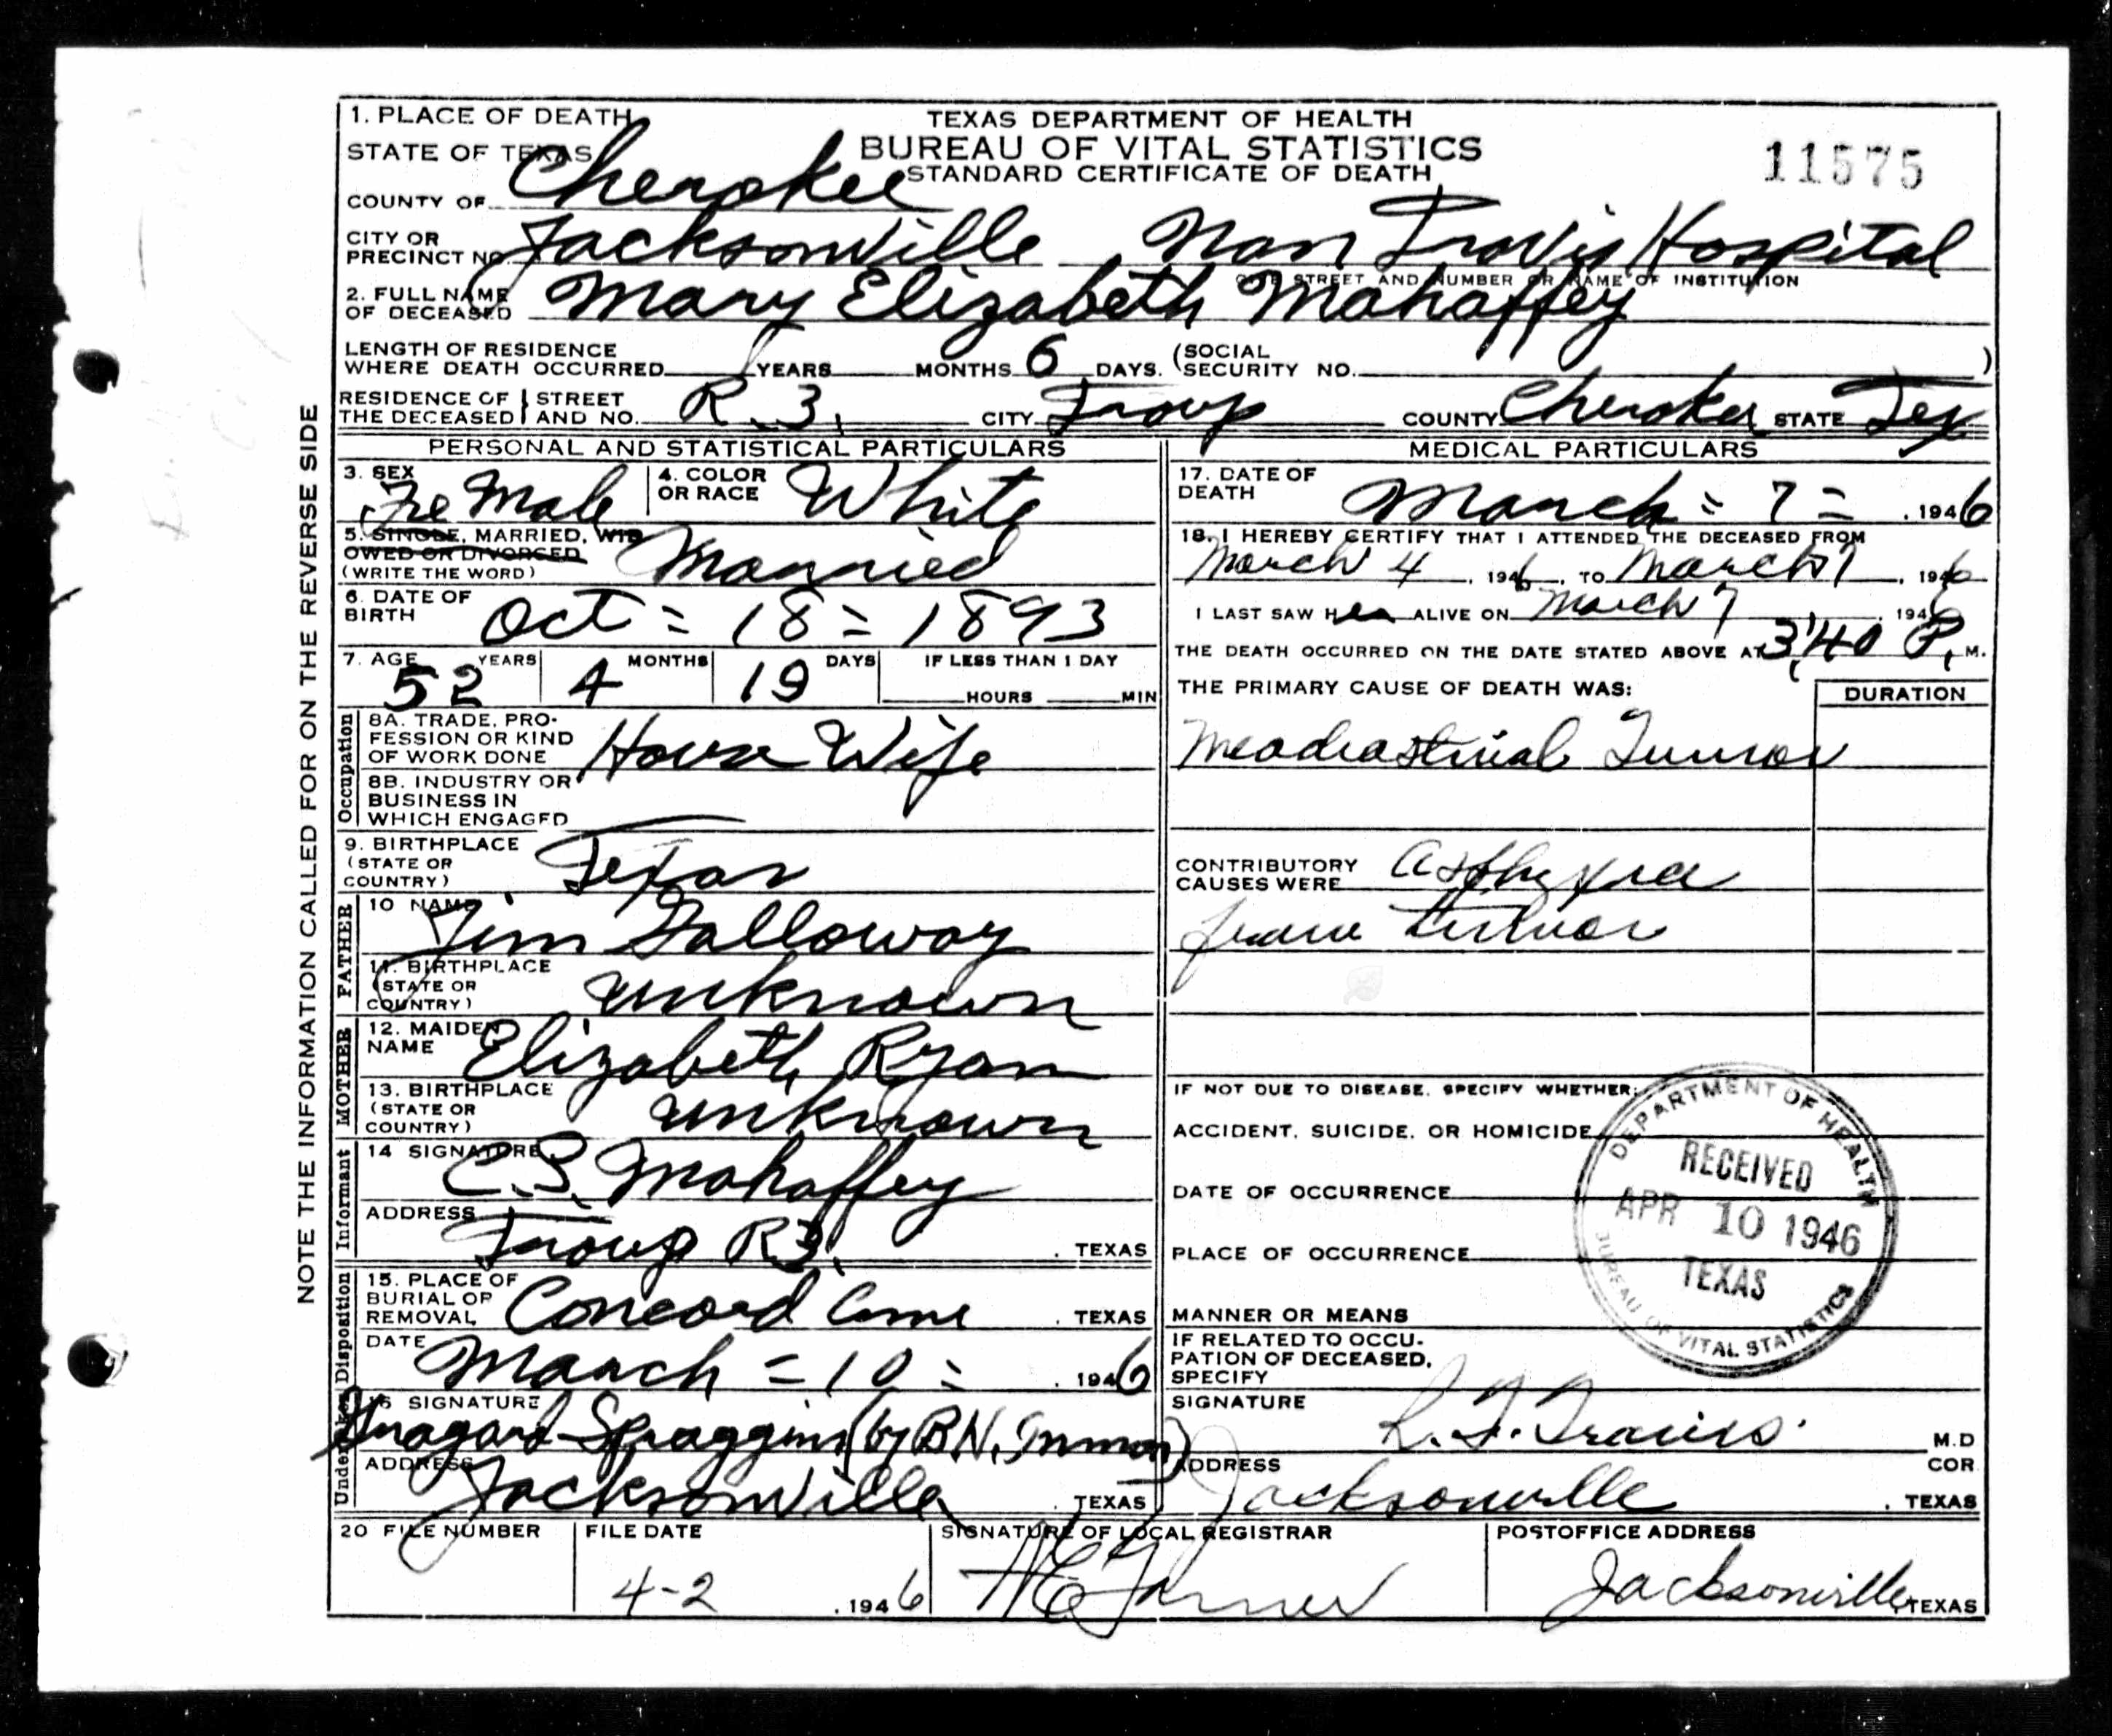 1. PLACE OF DEATH
TEXAS DEPARTMENT OF HEALTH
BUREAU OF VITAL STATISTICS
STANDARD CERTIFICATE OF DEATH
11575
STATE OF TEXAS
COUNTY OF Cherokee
CITY OR PRECINCT NO. Jacksonville Nan Travis Hospital
GIVE STREET AND NUMBER OR NAME OF INSTITUTION
2. FULL NAME OF DECEASED Mary Elizabeth Mahaffey
LENGTH OF RESIDENCE WHERE DEATH OCCURRED YEARS MONTHS 6 DAYS. (SOCIAL SECURITY NO. )
RESIDENCE OF THE DECEASED STREET AND NO. R.3, CITY Troup COUNTY Cherokee STATE Tex
PERSONAL AND STATISTICAL PARTICULARS
3. SEX Fe Male 4. COLOR OR RACE White
5. SINGLE, MARRIED, WIDOWED OR DIVORCED (WRITE THE WORD) Married
6. DATE OF BIRTH Oct = 18 = 1893
7. AGE 52 YEARS 4 MONTHS 19 DAYS IF LESS THAN 1 DAY HOURS MIN
Occupation
8A. TRADE, PROFESSION OR KIND OF WORK DONE House Wife
8B. INDUSTRY OR BUSINESS IN WHICH ENGAGED
9. BIRTHPLACE (STATE OR COUNTRY) Texas
FATHER
10 NAME Jim Galloway
11. BIRTHPLACE (STATE OR COUNTRY) unknown
MOTHER
12. MAIDEN NAME Elizabeth Ryan
13. BIRTHPLACE (STATE OR COUNTRY) unknown
Informant
14 SIGNATURE C.S. Mahaffey
ADDRESS Troup R3, TEXAS
Disposition
15. PLACE OF BURIAL OR REMOVAL Concord Ceme. TEXAS
DATE March = 10 = 1946
16 SIGNATURE Spraggins (by BN. Inman)
ADDRESS Jacksonville TEXAS
MEDICAL PARTICULARS
17. DATE OF DEATH March = 7 = 1946
18. I HEREBY CERTIFY THAT I ATTENDED THE DECEASED FROM
March 4, 1946, TO March 7, 1946
I LAST SAW Her ALIVE ON March 7, 1946
THE DEATH OCCURRED ON THE DATE STATED ABOVE AT 3:40 P. M.
THE PRIMARY CAUSE OF DEATH WAS: DURATION
Meadiastinal Tumor
CONTRIBUTORY CAUSES WERE Asphyxia
from tumor
IF NOT DUE TO DISEASE, SPECIFY WHETHER:
ACCIDENT, SUICIDE, OR HOMICIDE
DATE OF OCCURRENCE
PLACE OF OCCURRENCE
MANNER OR MEANS
IF RELATED TO OCCUPATION OF DECEASED, SPECIFY
SIGNATURE R. T. Travis M.D
COR
ADDRESS Jacksonville, TEXAS
DEPARTMENT OF HEALTH
RECEIVED
APR 10 1946
TEXAS
BUREAU OF VITAL STATISTICS
20 FILE NUMBER
FILE DATE 4-2, 1946
SIGNATURE OF LOCAL REGISTRAR
POSTOFFICE ADDRESS Jacksonville, TEXAS
NOTE THE INFORMATION CALLED FOR ON THE REVERSE SIDE